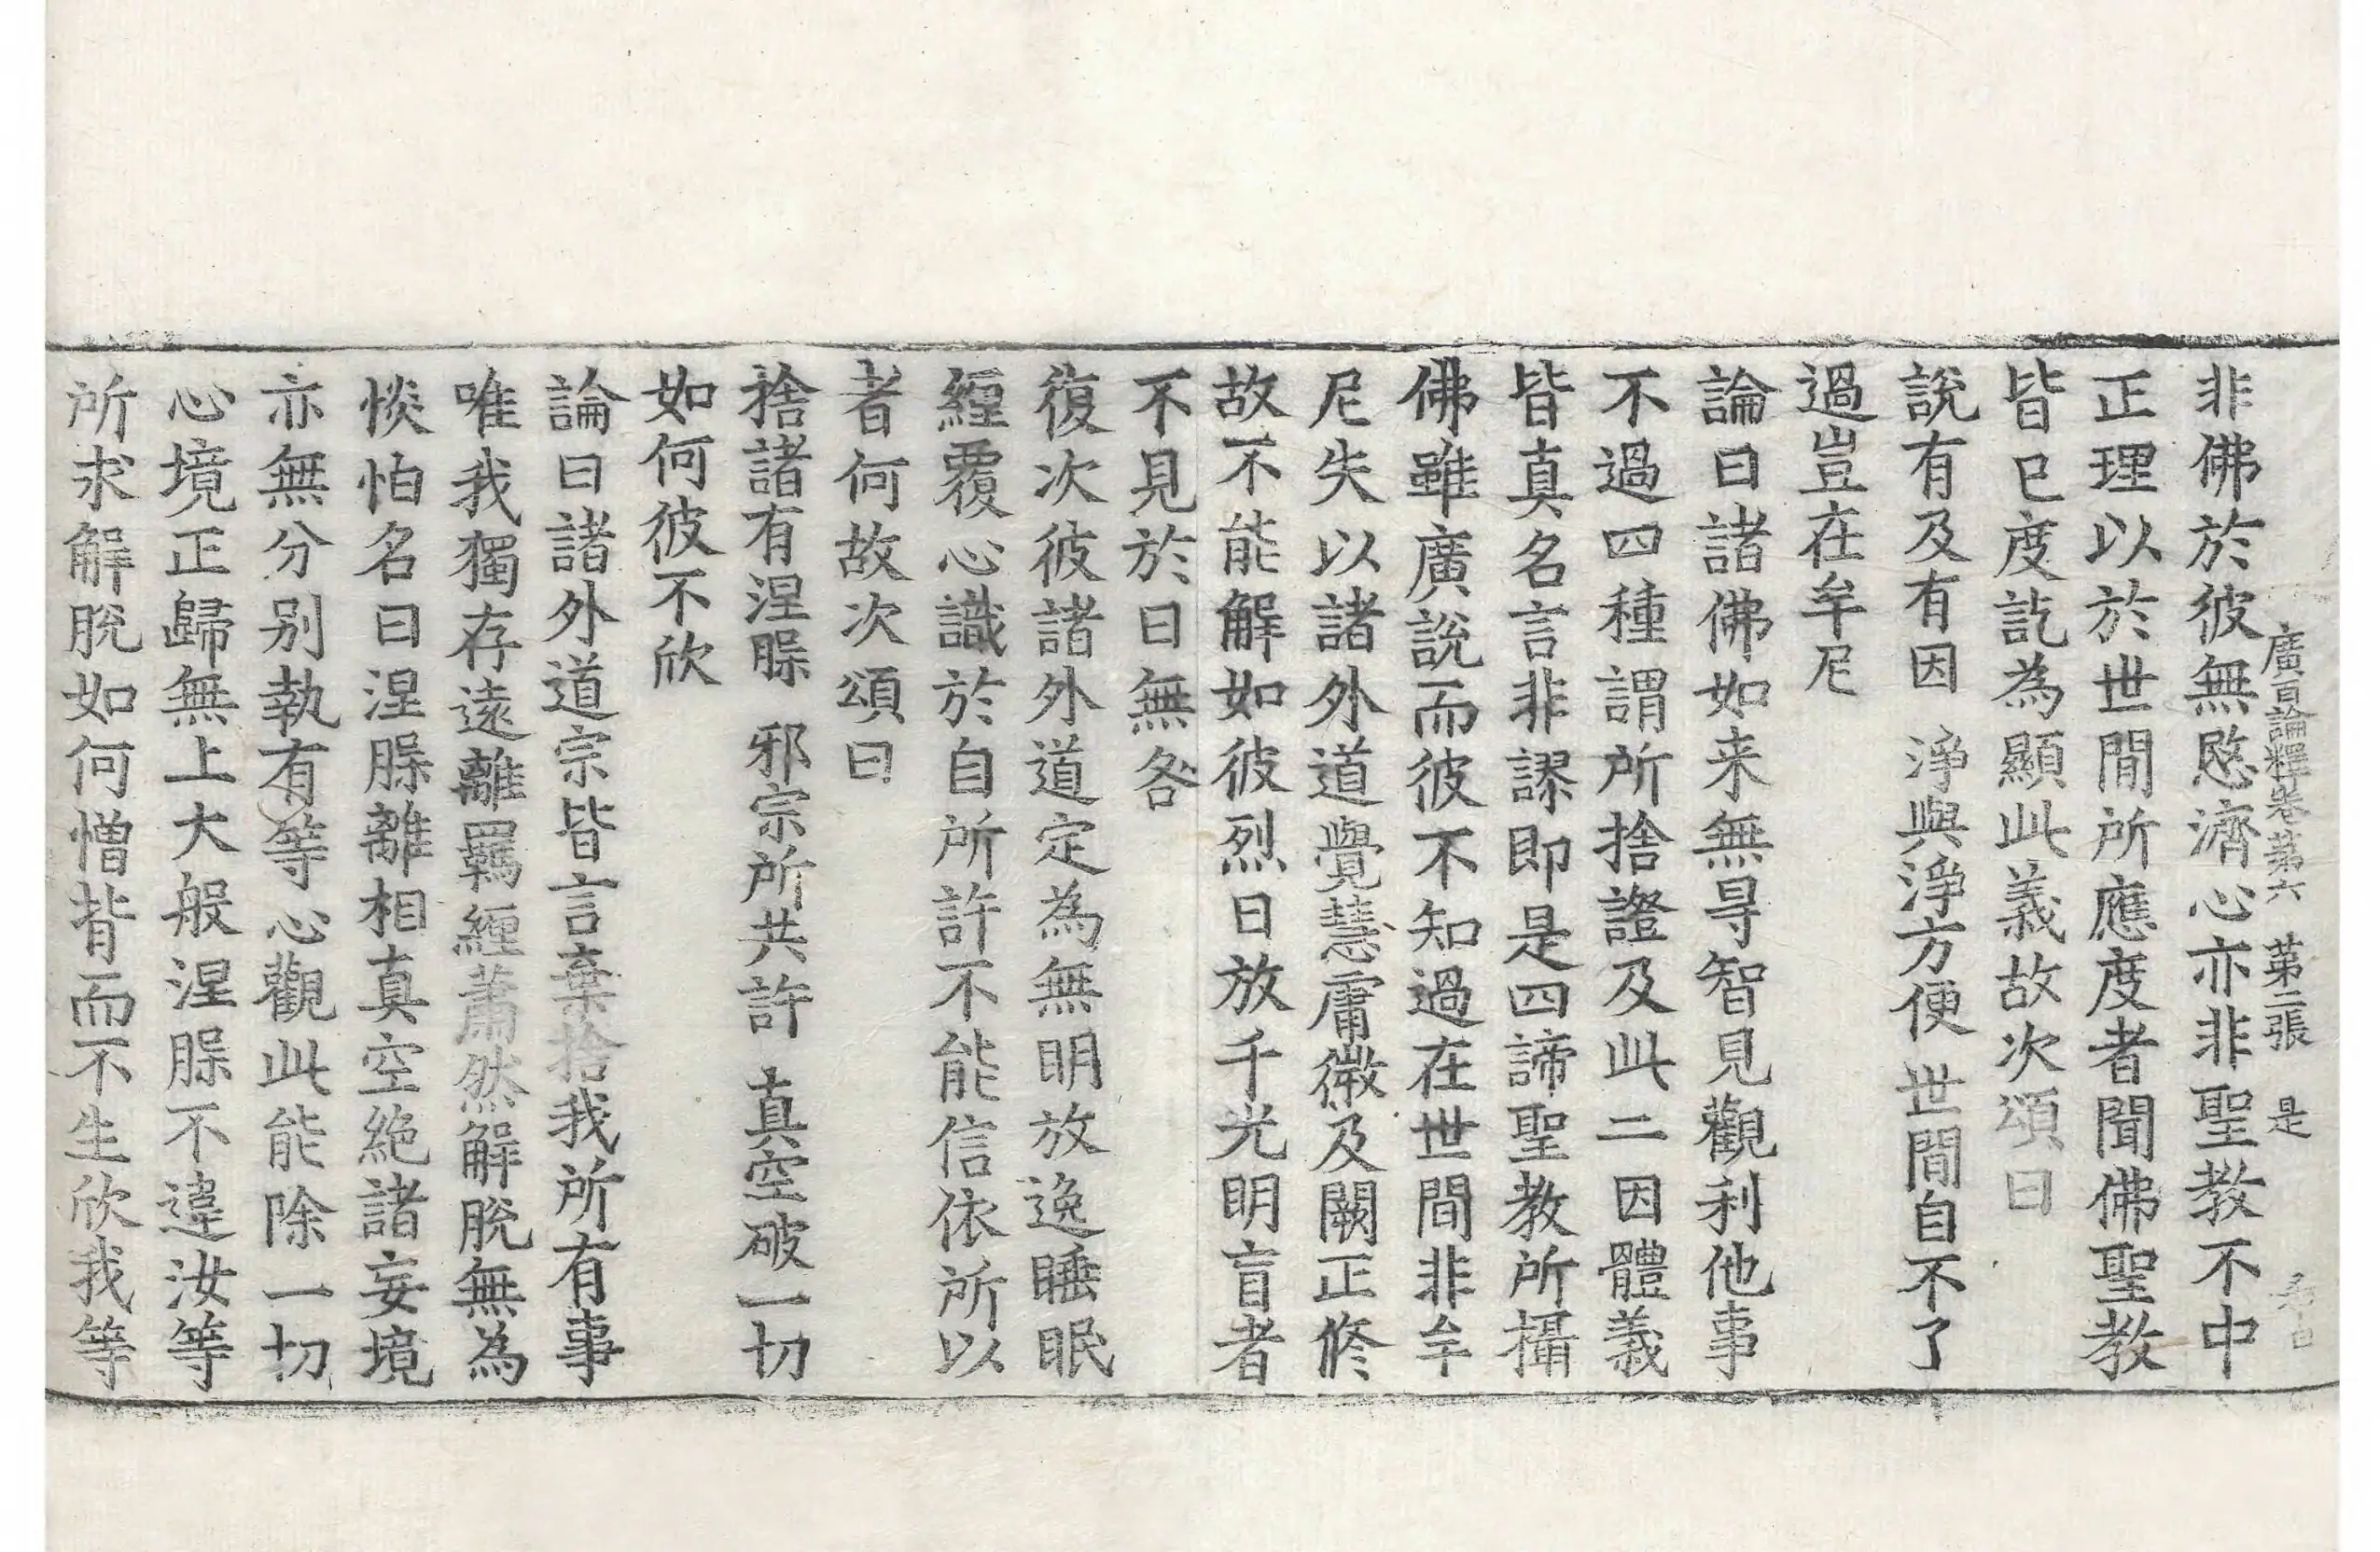 廣百論釋卷苐六 苐二張 是
非佛於彼無愍濟心亦非聖教不中
正理以於世間所應度者聞佛聖教
皆已度訖為顯此義故次頌曰
說有及有因 淨與淨方便 世間自不了
過豈在牟尼
論曰諸佛如来無㝵智見觀利他事
不過四種謂所捨證及此二因體義
皆真名言非謬即是四諦聖教所攝
佛雖廣說而彼不知過在世間非牟
尼失以諸外道覺慧庸微及闕正修
故不能解如彼烈日放千光明盲者
不見於日無咎
復次彼諸外道定為無明放逸睡眠
纏覆心識於自所許不能信依所以
者何故次頌曰
捨諸有涅槃 邪宗所共許 真空破一切
如何彼不欣
論曰諸外道宗皆言棄捨我所有事
唯我獨存遠離羈纏蕭然解脫無為
惔怕名曰涅槃離相真空絕諸妄境
亦無分別執有等心觀此能除一切
心境正歸無上大般涅槃不違汝等
所求解脫如何憎背而不生欣我等